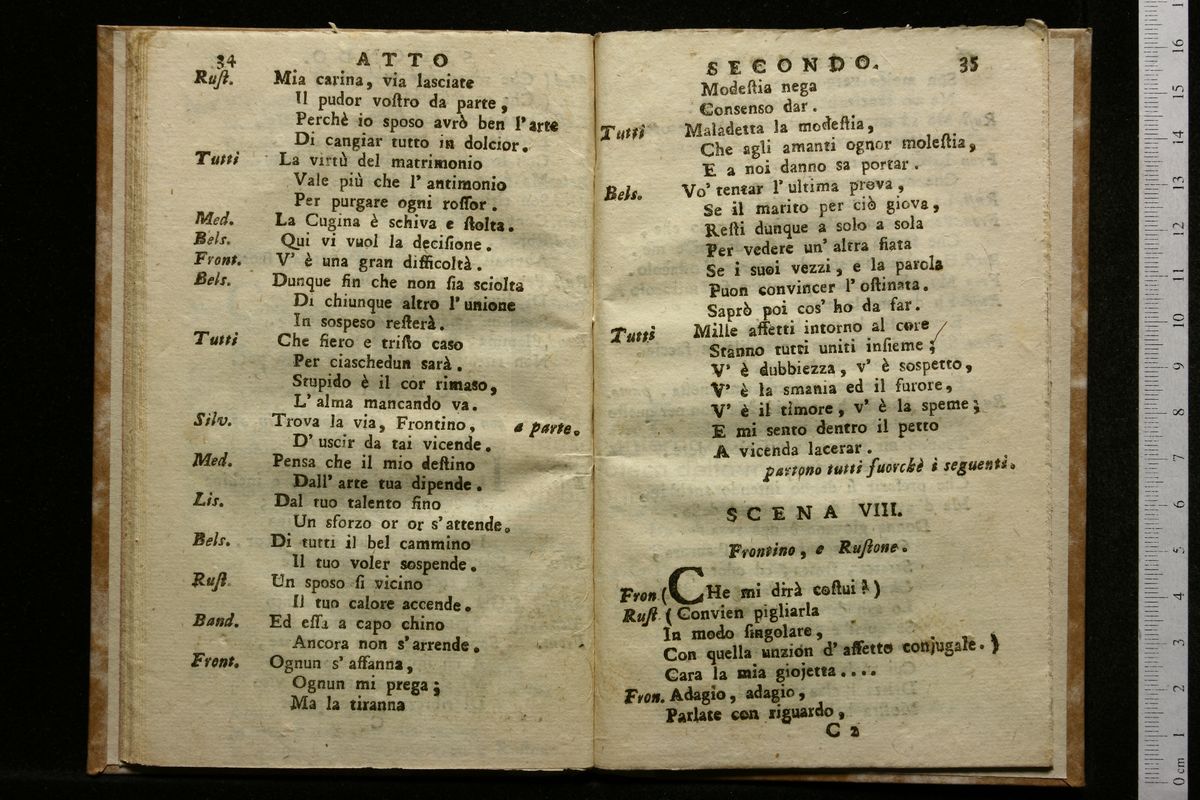 34 ATTO
Ruſt. Mia carina, via laſciate
Il pudor voſtro da parte,
Perchè io spoſo avrò ben l'arte
Di cangiar tutto in dolcior.
Tutti La virtù del matrimonio
Vale più che l'antimonio
Per purgare ogni roſſor.
Med. La Cugina è schiva e ſtolta.
Bels. Qui vi vuol la deciſione.
Front. V'è una gran difficoltà.
Bels. Dunque fin che non ſia sciolta
Di chiunque altro l'unione
In sospeso reſterà.
Tutti Che fiero e triſto caso
Per ciaschedun sarà.
Stupido è il cor rimaso,
L'alma mancando va.
Silv. Trova la via, Frontino, a parte.
D'uscir da tai vicende.
Med. Pensa che il mio deſtino
Dall'arte tua dipende.
Lis. Dal tuo talento fino
Un sforzo or or s'attende.
Bels. Di tutti il bel cammino
Il tuo voler sospende.
Ruſt. Un sposo ſi vicino
Il tuo calore accende.
Band. Ed eſſa a capo chino
Ancora non s'arrende.
Front. Ognun s'affanna,
Ognun mi prega;
Ma la tiranna
SECONDO. 35
Modeſtia nega
Consenso dar.
Tutti Maladetta la modeſtia,
Che agli amanti ognor moleſtia,
E a noi danno sa portar.
Bels. Vo' tentar l'ultima prova,
Se il marito per ciò giova,
Reſti dunque a solo a sola
Per vedere un'altra fiata
Se i suoi vezzi, e la parola
Puon convincer l'oſtinata.
Saprò poi cos' ho da far.
Tutti Mille affetti intorno al core
Stanno tutti uniti inſieme;
V'è dubbiezza, v'è sospetto,
V'è la smania ed il furore,
V'è il timore, v'è la speme;
E mi sento dentro il petto
A vicenda lacerar.
partono tutti fuorchè i seguenti.
SCENA VIII.
Frontino, e Ruſtone.
Fron (CHe mi dirà coſtui?)
Ruſt. (Convien pigliarla
In modo ſingolare,
Con quella unzion d'affetto conjugale.)
Cara la mia giojetta....
Fron. Adagio, adagio,
Parlate con riguardo,
C 2
0 cm 1 2 3 4 5 6 7 8 9 10 11 12 13 14 15 16